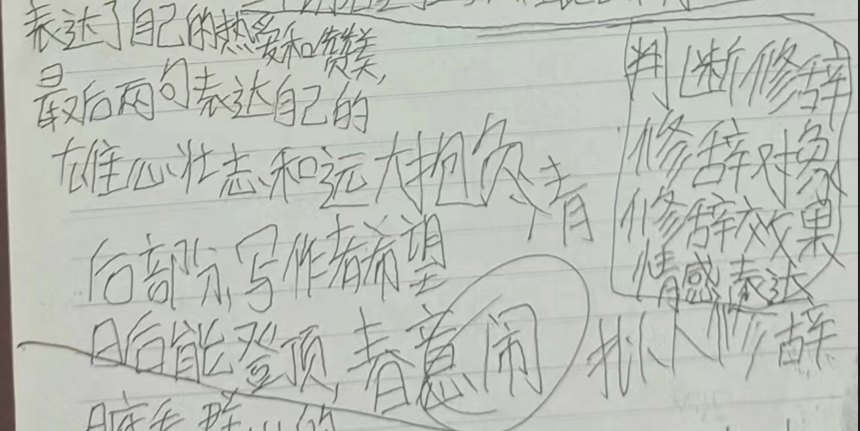 表达了自己的热爱和赞美,
最后两句表达自己的
雄心壮志和远大抱负,情
后部分,写作者希望
日后能登顶,春意闹
拟人修辞
判断修辞
修辞对象
修辞效果
情感表达